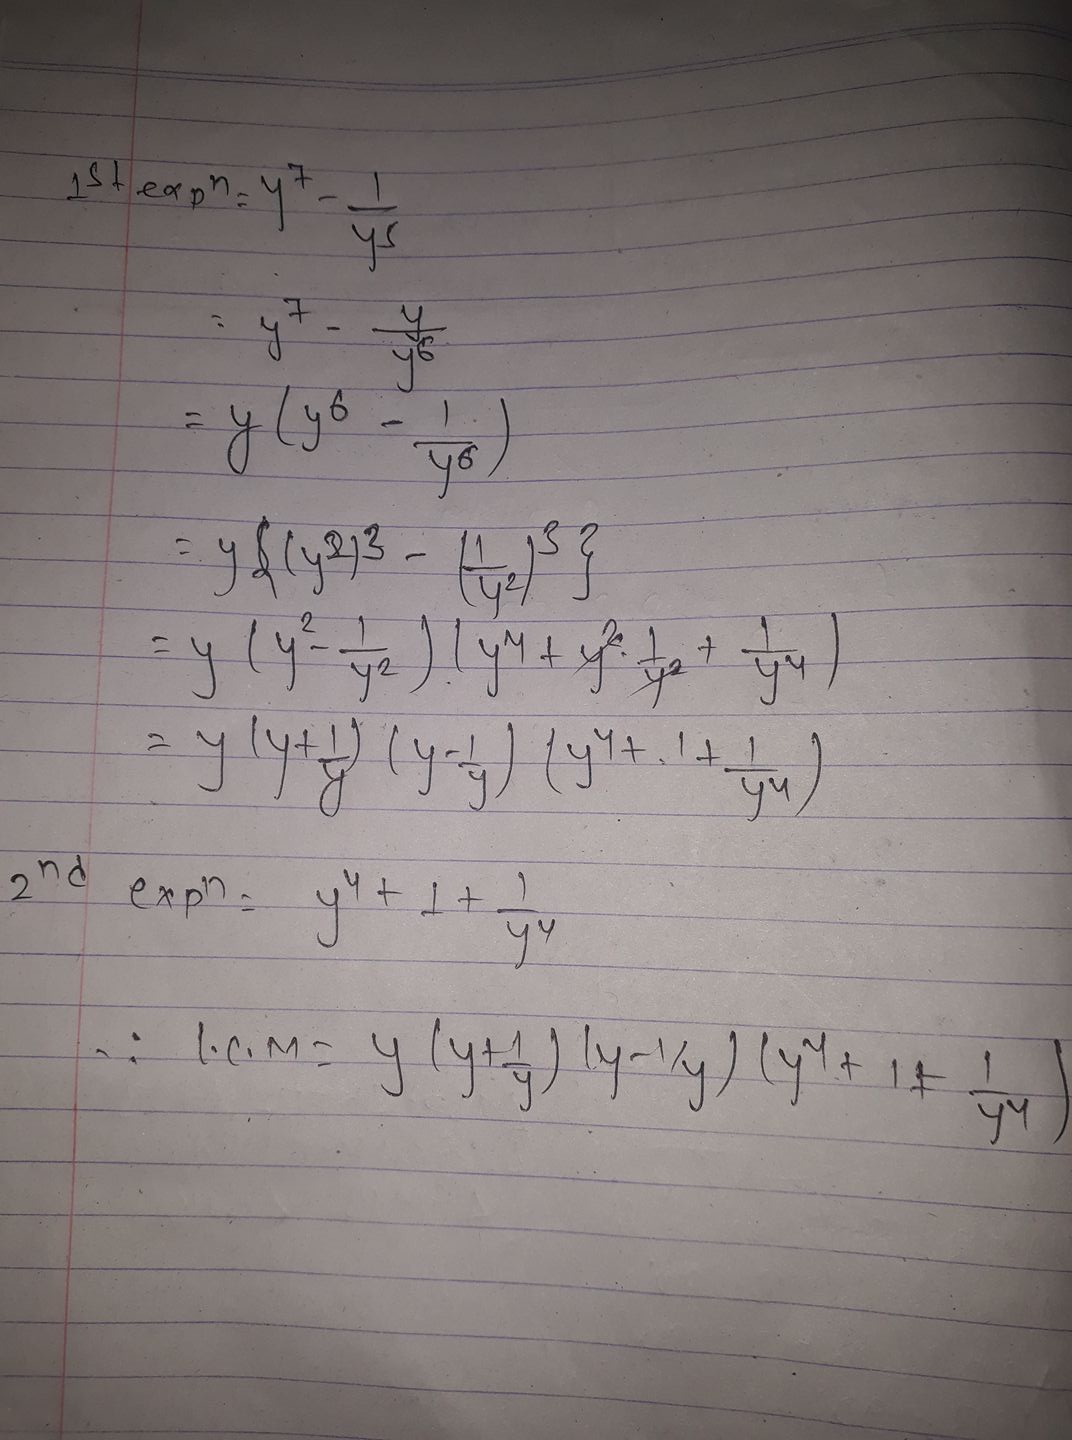 1st expn = y⁷ - 1/y⁵
= y⁷ - y/y⁶
= y (y⁶ - 1/y⁶)
= y {(y²)³ - (1/y²)³}
= y (y² - 1/y²) (y⁴ + y² · 1/y² + 1/y⁴)
= y (y + 1/y) (y - 1/y) (y⁴ + 1 + 1/y⁴)
2nd expn = y⁴ + 1 + 1/y⁴
∴ L.C.M = y (y + 1/y) (y - 1/y) (y⁴ + 1 + 1/y⁴)